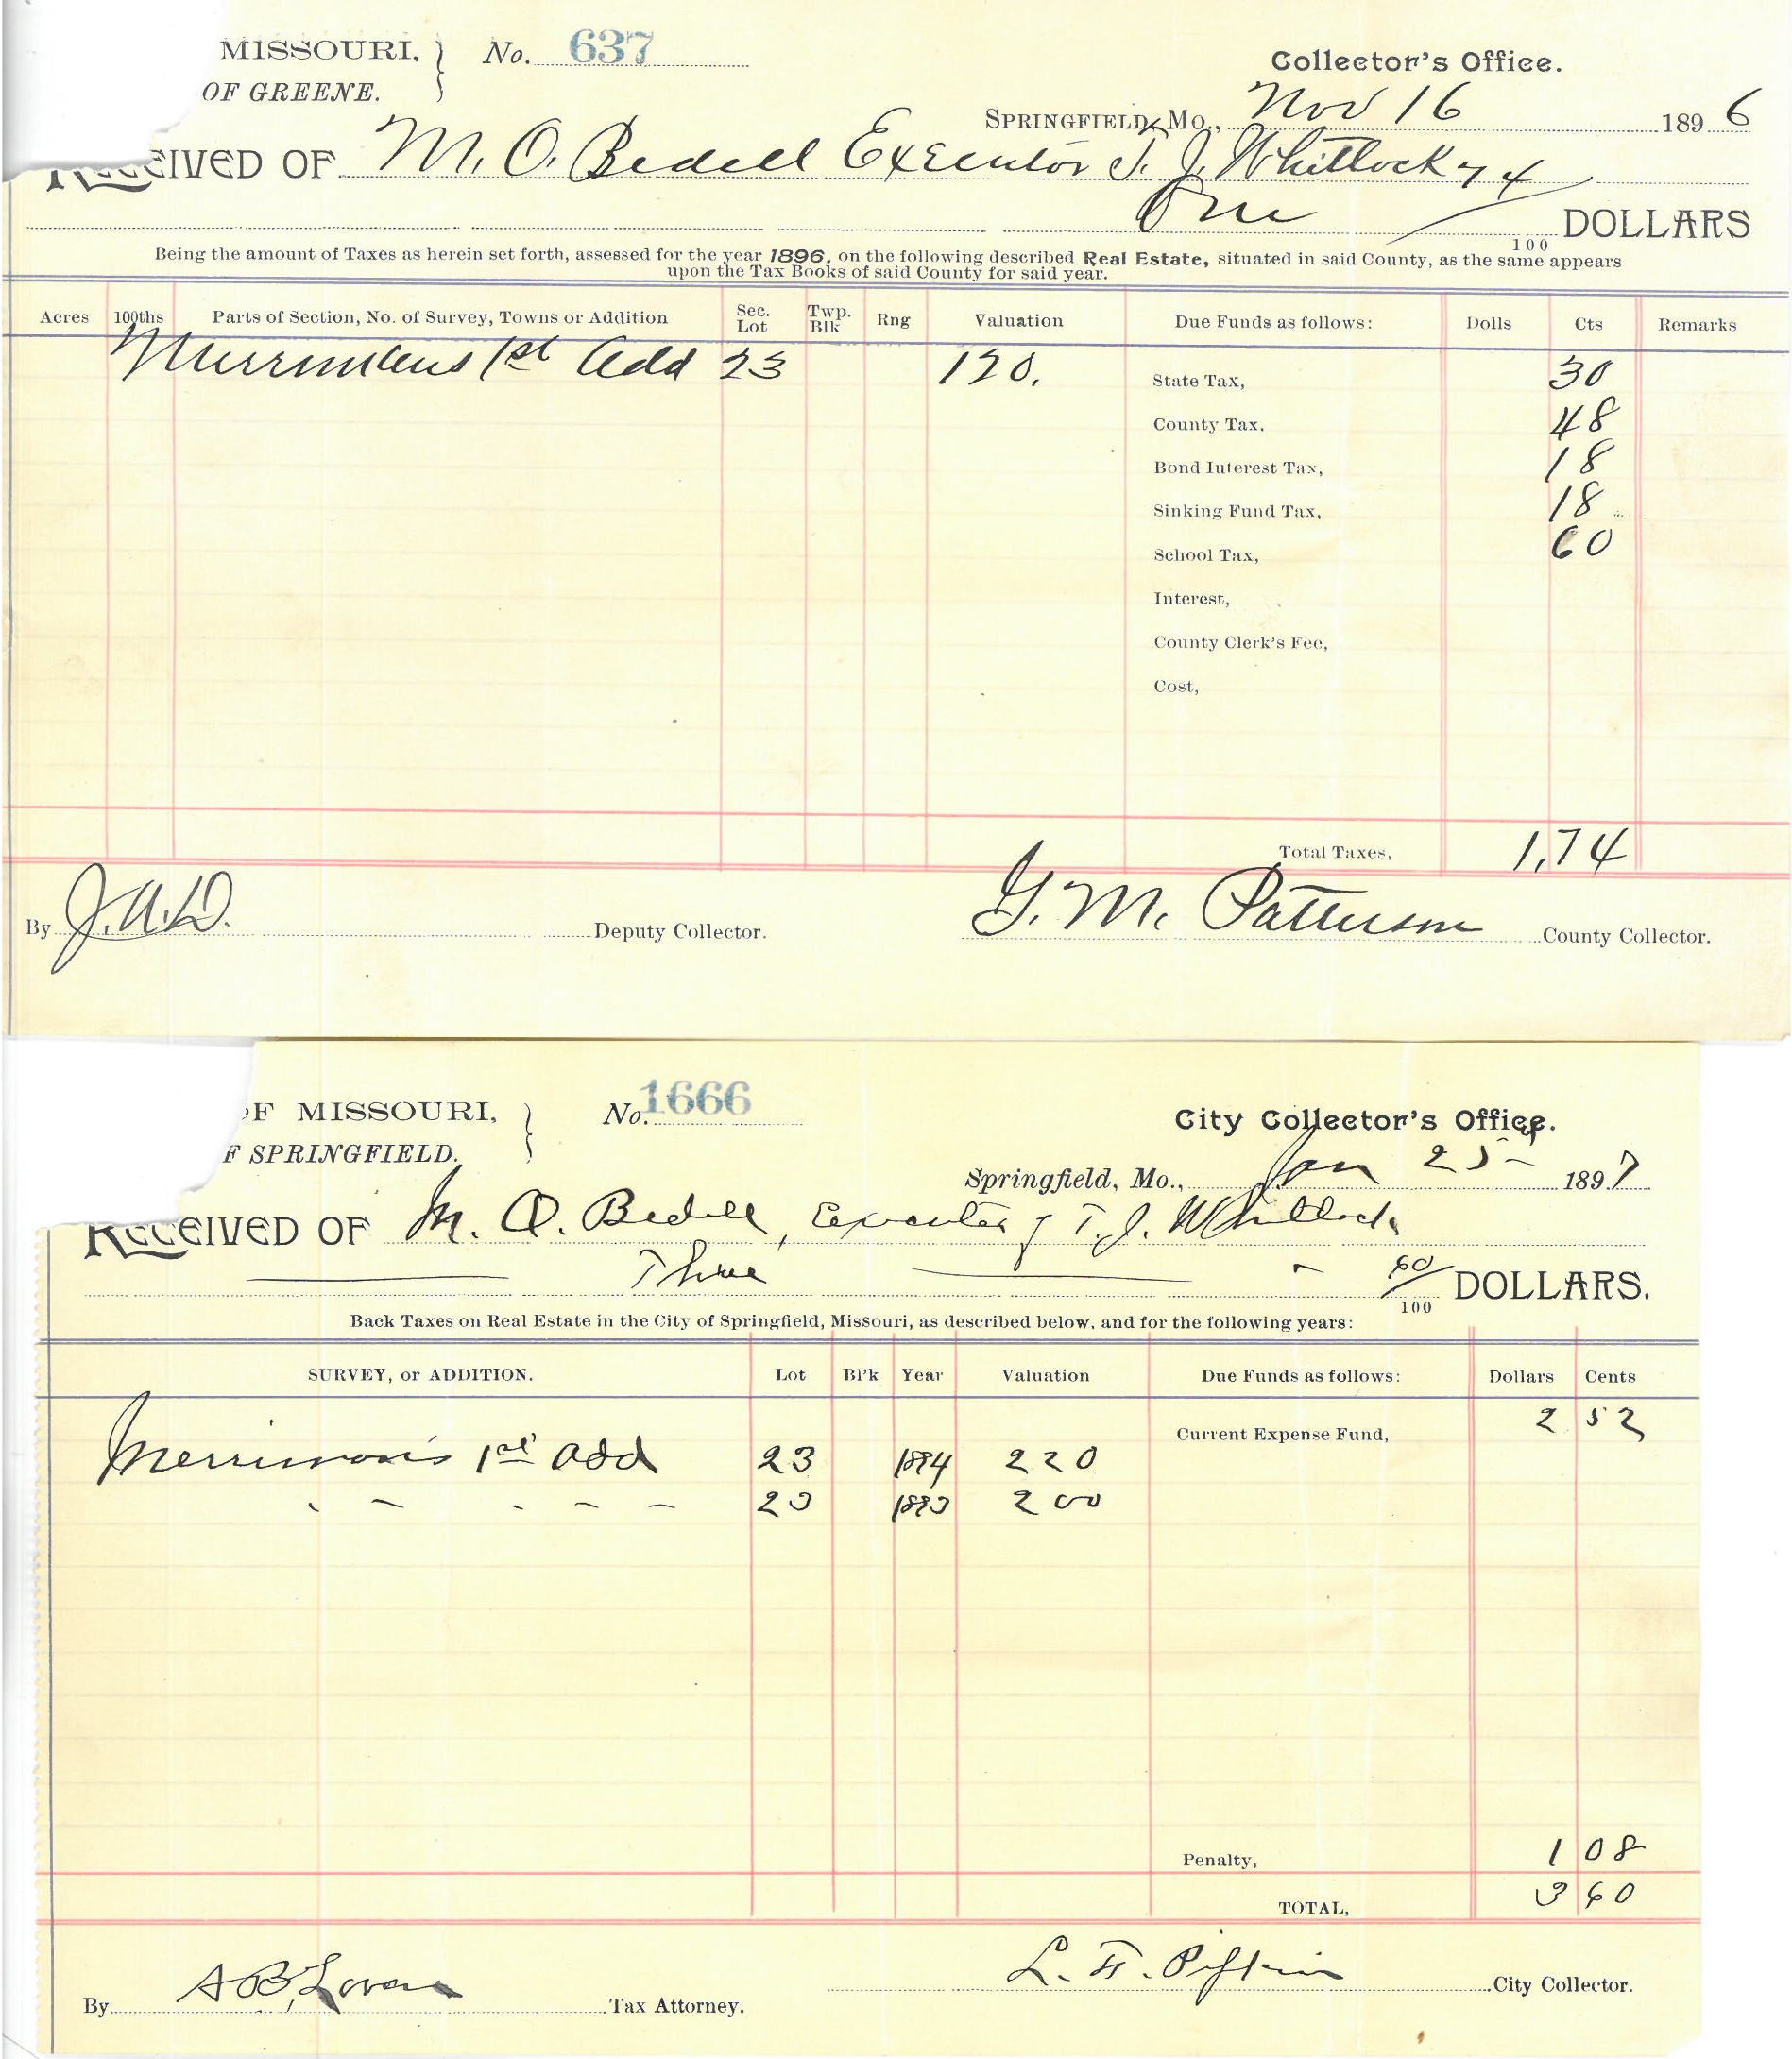 MISSOURI, } No. 637
OF GREENE.
Collector's Office.
SPRINGFIELD, Mo., Nov 16 1896
RECEIVED OF M. O. Bedell Executor T. J. Whitlock 74
One 100 DOLLARS
Being the amount of Taxes as herein set forth, assessed for the year 1896, on the following described Real Estate, situated in said County, as the same appears
upon the Tax Books of said County for said year.
Acres 100ths Parts of Section, No. of Survey, Towns or Addition Sec. Lot Twp. Blk Rng Valuation Due Funds as follows: Dolls Cts Remarks
Merrimans 1st Add 23 120. State Tax, 30
County Tax. 48
Bond Interest Tax, 18
Sinking Fund Tax, 18
School Tax, 60
Interest,
County Clerk's Fee,
Cost,
Total Taxes, 1,74
By J.A.D. Deputy Collector. G. M. Patterson County Collector.
OF MISSOURI, } No. 1666
F SPRINGFIELD.
City Collector's Office.
Springfield, Mo., Jan 25 1897
RECEIVED OF M. O. Bedell, Executor of T. J. Whitlock
Three 60/100 DOLLARS.
Back Taxes on Real Estate in the City of Springfield, Missouri, as described below, and for the following years:
SURVEY, or ADDITION. Lot Bl'k Year Valuation Due Funds as follows: Dollars Cents
Current Expense Fund, 2 52
Merrimon's 1st Add 23 1894 220
23 1893 200
Penalty, 1 08
TOTAL, 3 60
By A B Lovan Tax Attorney. L. F. Pipkin City Collector.